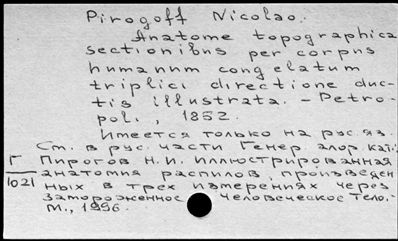 Pirogoff Nicolao.
Anatome topographica
sectionibus per corpus
humanum congelatum
triplici directione duc-
tis illustrata. - Petro-
pol., 1852.
Имеется только на рус. яз.
См. в рус. части Генер. алф. кат.:
Г Пирогов Н.И. Иллюстрированная
1021 анатомия распилов, произведен
ных в трех измерениях через
замороженное человеческое тело.-
М., 1996.